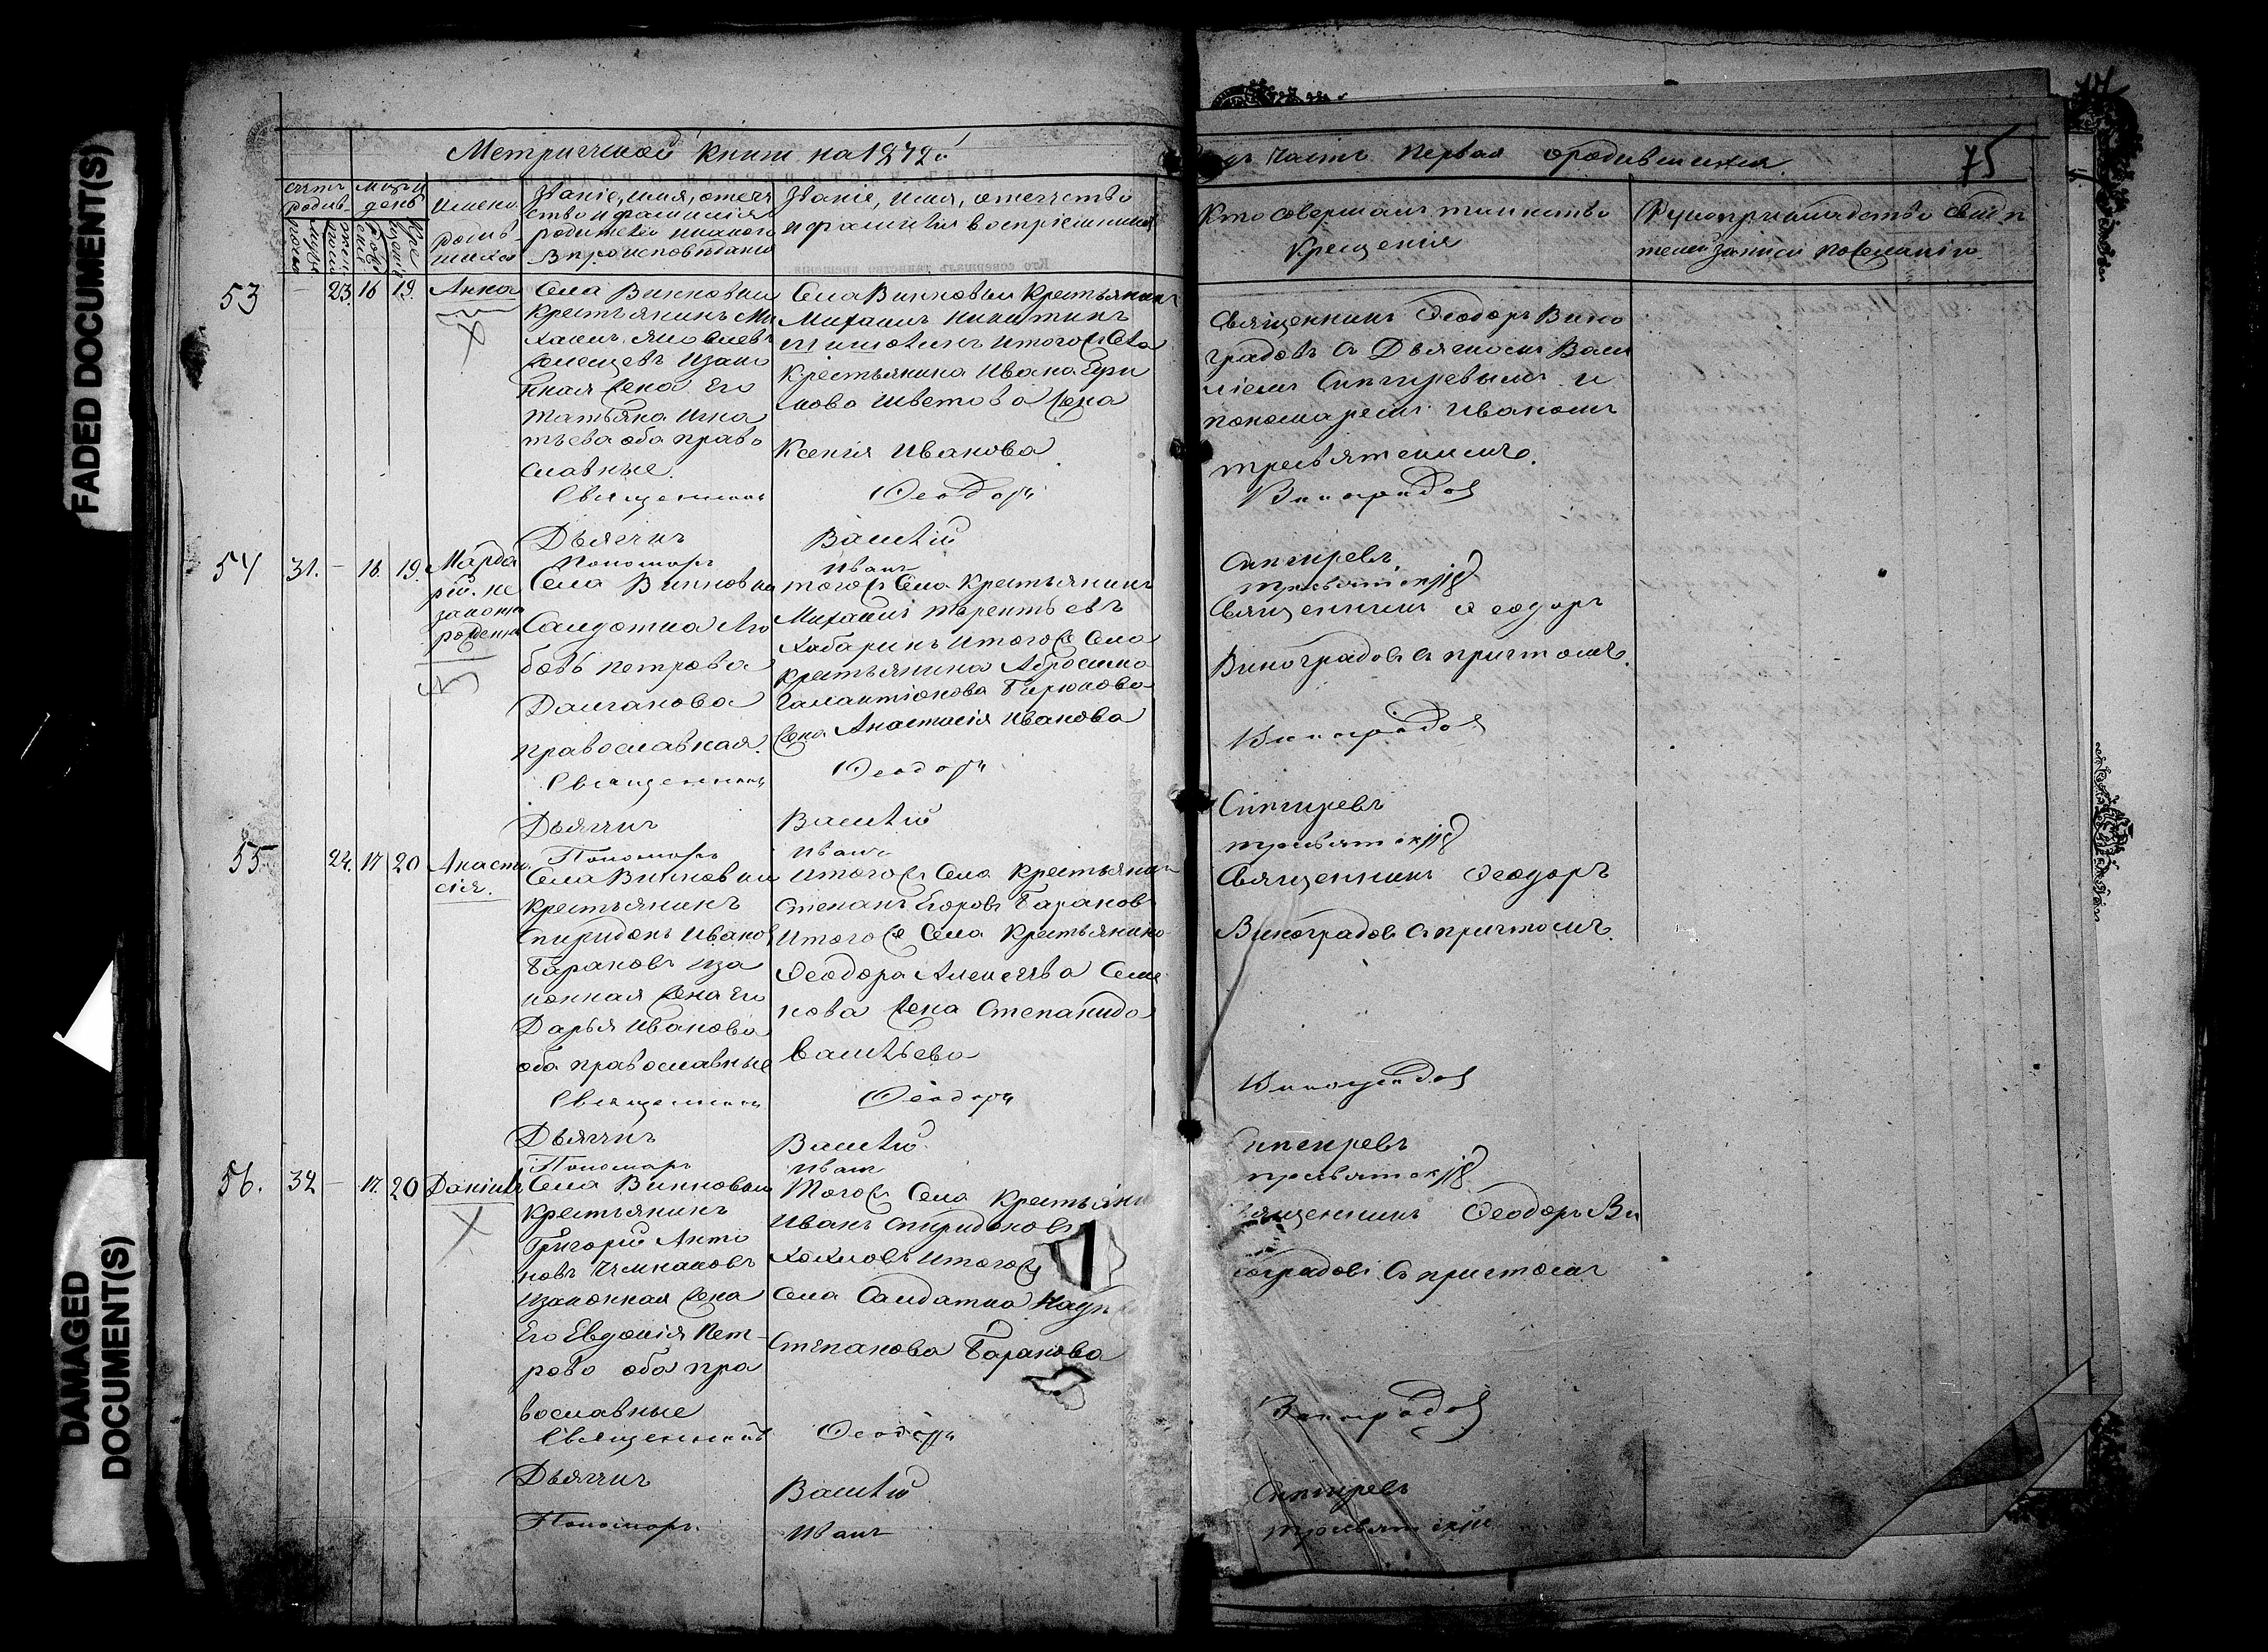 FADED DOCUMENT(S)
DAMAGED DOCUMENT(S)
Метрической книги на 1872й
годъ часть первая о родившихся.
75
Счетъ родив-
Мѣсяцъ и день
Имена родив-шихся
Званіе, имя, отече
ство и фамилія
родителей и какого
вѣроисповѣданія
Званіе, имя, отечество
и фамилія воспріемниковъ
Кто совершалъ таинство
крещенія
Рукоприкладство свидѣ
телей записи по желанію.
53
— 23. 16 19. Анна
Села Винновки
крестьянинъ Ми
хаилъ Яковлевъ
и зако
нная жена его
Татьяна Игна
тьева оба право
славные.
Села Винновки крестьянинъ
Михаилъ Никитинъ
и тогожъ села
крестьянина Ивана Ефи
мова Цветова жена
Ксенія Иванова
Священникъ Феодоръ Вино
градовъ съ Дьячкомъ Васи
ліемъ Снегиревымъ и
пономаремъ Иваномъ
Священникъ Феодоръ Виноградовъ
Дьячекъ Василій Снегиревъ
Пономарь Иванъ
54
31. — 16. 19. Марда
рій. не
законно
рожденный
Села Винновки
Солдатка Лю
бовь Петрова
Долганова
православная.
тогожъ села крестьянинъ
Михаилъ Терентьевъ
Хабаринъ и тогоже села
крестьянина Абросима
Галактіонова Бирюкова
жена Анастасія Иванова
Священникъ Феодоръ
Виноградовъ съ причтомъ.
Священникъ Феодоръ Виноградовъ
Дьячекъ Василій Снегиревъ
Пономарь Иванъ
55
24. 17 20 Анаста
сія.
Села Винновки
крестьянинъ
Спиридонъ Иванов
Барановъ и за
конная жена его
Дарья Иванова
оба православные
и тогожъ села крестьянинъ
Степанъ Егоровъ Барановъ
и тогоже села крестьянина
Феодора Алексеева Семе
нова жена Степанида
Васильева
Священникъ Феодоръ
Виноградовъ съ причтомъ.
Священникъ Феодоръ Виноградовъ
Дьячекъ Василій Снегиревъ
Пономарь Иванъ
56.
32 — 17. 20 Даніилъ
Села Винновки
крестьянинъ
Григорій Анто
новъ
и законная жена
его Евдокія Пет-
рова оба пра
вославные
Тогожъ села крестьяни
Иванъ Спиридоновъ
Хохловъ и тогожъ
села Солдатка
Степанова Баранова
Священникъ Феодоръ Ви
ноградовъ съ причтомъ
Священникъ Феодоръ Виноградовъ
Дьячекъ Василій Снегиревъ
Пономарь. Иванъ